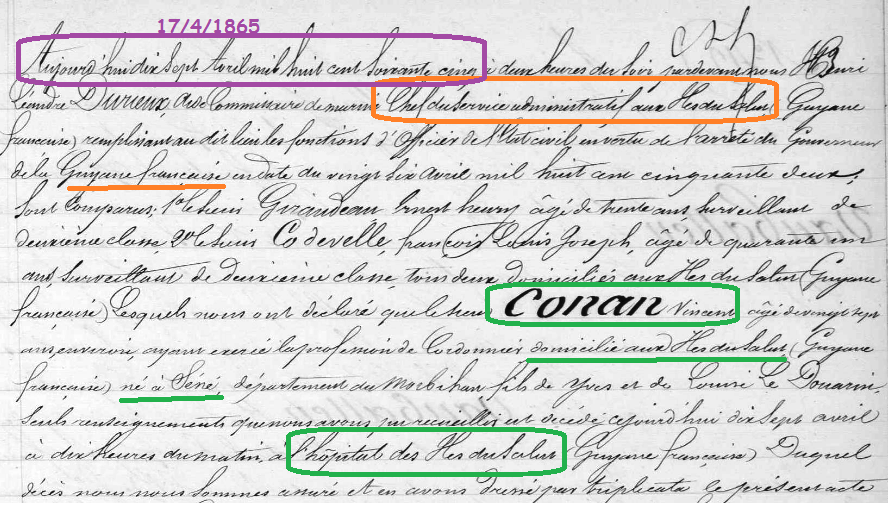 17/4/1865
Aujourd'hui dix sept Avril mil huit cent soixante cinq à deux heures du soir par devant nous Henri
Léandre Durieux, aide Commissaire de marine Chef du Service administratif aux Iles du Salut (Guyane
française) remplissant au dit lieu les fonctions d'Officier de l'Etat civil en vertu de l'arrêté du Gouverneur
de la Guyane française en date du vingt six avril mil huit cent cinquante deux;
Sont Comparus; 1° le Sieur Girandeau Ernest henry agé de trente ans, surveillant de
deuxième classe, 2° le Sieur Codevelle, françois Louis Joseph, âgé de quarante un
ans, surveillant de deuxième classe, tous deux domiciliés aux Iles du Salut (Guyane
française) Lesquels nous ont déclaré que le sieur Conan Vincent agé de vingt sept
ans environ, ayant exercé la profession de Cordonnier domicilié aux Iles du Salut (Guyane
française) né à Séné, département du Morbihan fils de Yves et de Louise Le Douarin
seuls renseignements que nous avons pu recueillir est décédé aujourd'hui dix sept avril
à dix heures du matin, à l'hôpital des Iles du Salut (Guyane française) Duquel
décès nous nous sommes assuré et en avons dressé par triplicata le présent acte